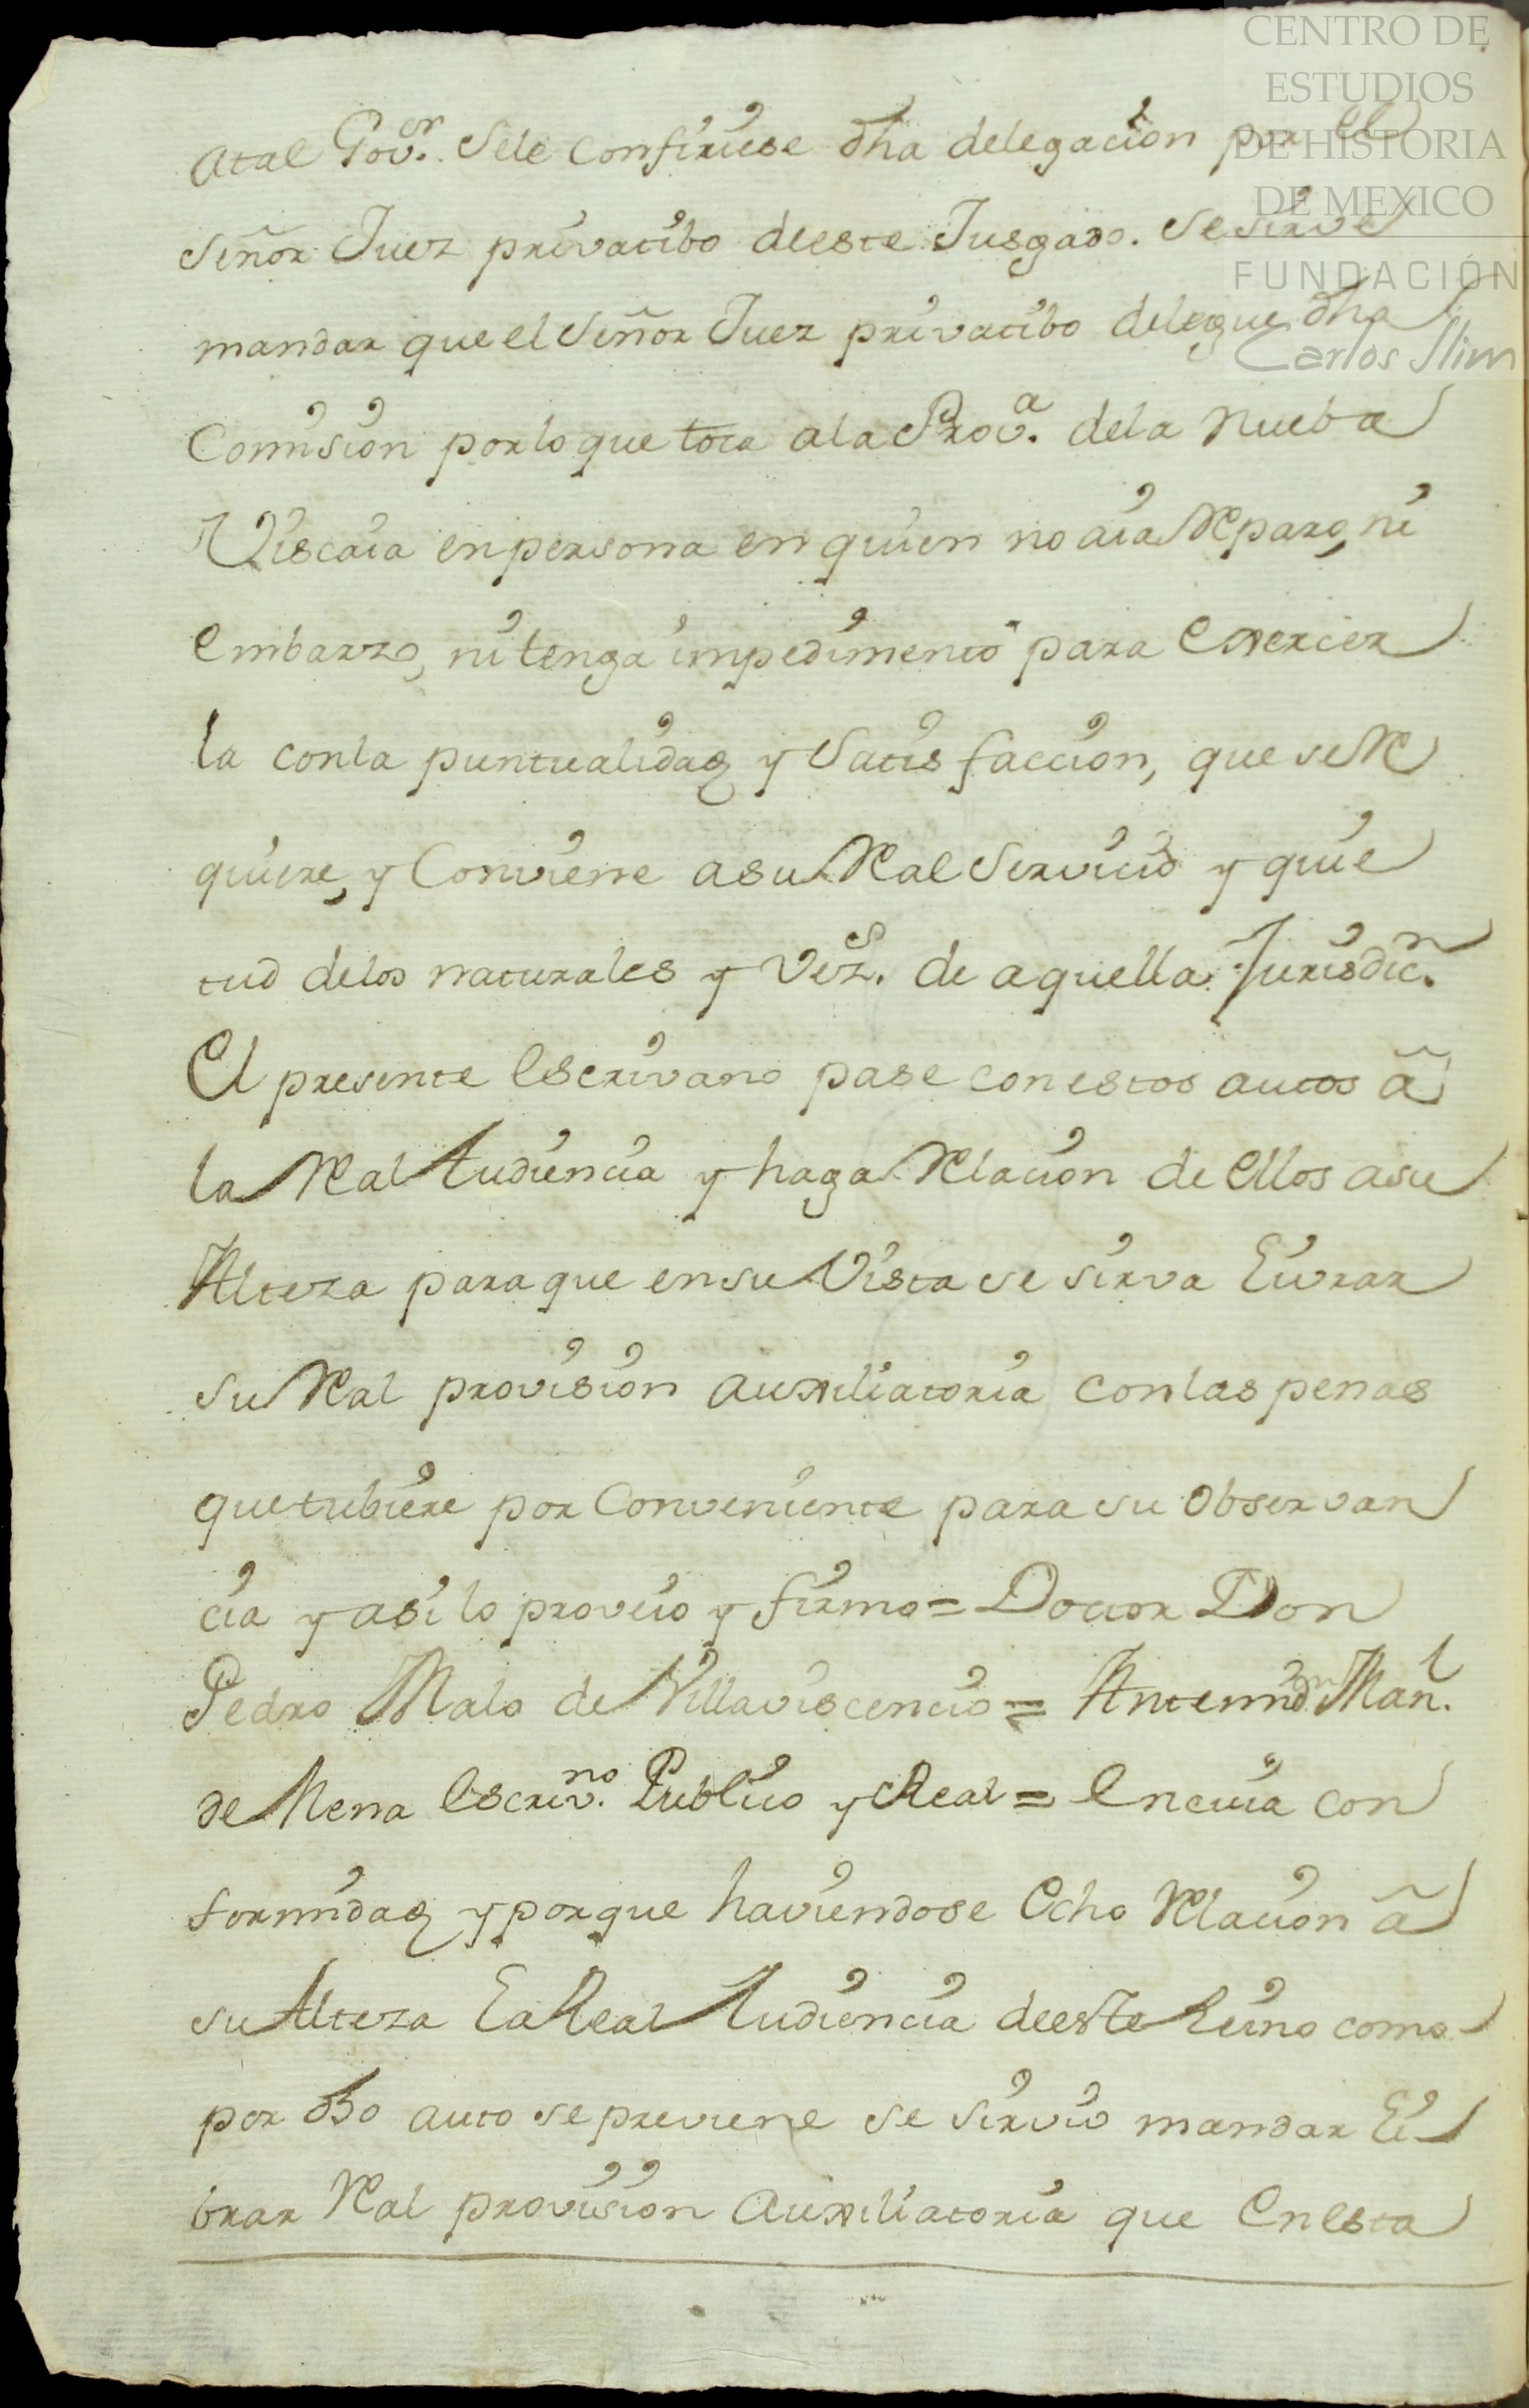 CENTRO DE
ESTUDIOS
DE HISTORIA
DE MEXICO
FUNDACIÓN
Carlos Slim
atal Gov.or sele confiriese dha delegacion por el
señor Juez privatibo deeste Jusgado. se sirve
mandar que el señor Juez privatibo delegue dha
Comision porlo que toca ala Prov.a dela nueba
Viscaia enpersona en quien no aia Reparo, ni
embarzo, ni tenga impedimento para exercer
la conla puntualidad y satisfaccion, que se Re
quiere, y Conviene asu Real servicio y quie
tud delos naturales y vez.s de aquella Jurisdic.n
El presente escrivano pase con estos autos â
la Real Audiencia y haga Relacion de ellos asu
Alteza para que ensu vista se sirva livrar
su Real provision auxiliatoria conlas penas
que tubiere por Conveniente para su observan
cia y asi lo proveio y firmo = Doctor Don
Pedro Malo de Villaviscencio = Antemi dn Man.l
de Mena escriv.no Publico y Real = encuia con
formidad y porque haviendose echo Relacion â
su Alteza La Real Audiencia deeste Reino como
por dho auto se previene se sirvio mandar li
brar Real provision auxiliatoria que en esta